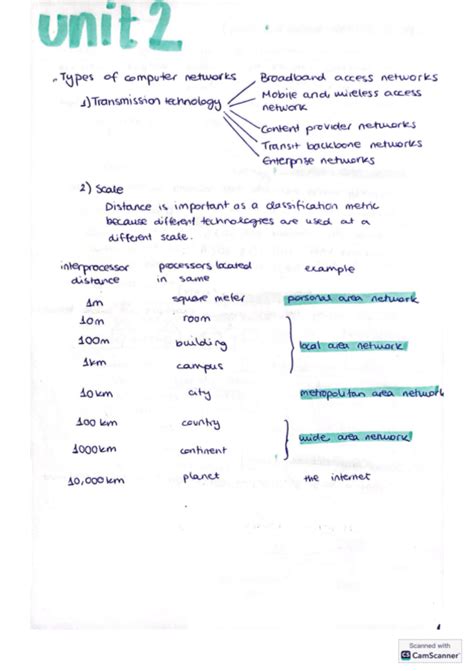 unit 2
Types of computer networks
1) Transmission technology
Broadband access networks
Mobile and wireless access
network
Content provider networks
Transit backbone networks
Enterprise networks
2) Scale
Distance is important as a classification metric
because different technologies are used at a
different scale.
interprocessor processors located example
distance in same
1m square meter personal area network
10m room
100m building local area network
1km campus
10km city metropolitan area network
100 km country
wide area network
1000km continent
10,000km planet the internet
Scanned with
CS CamScanner